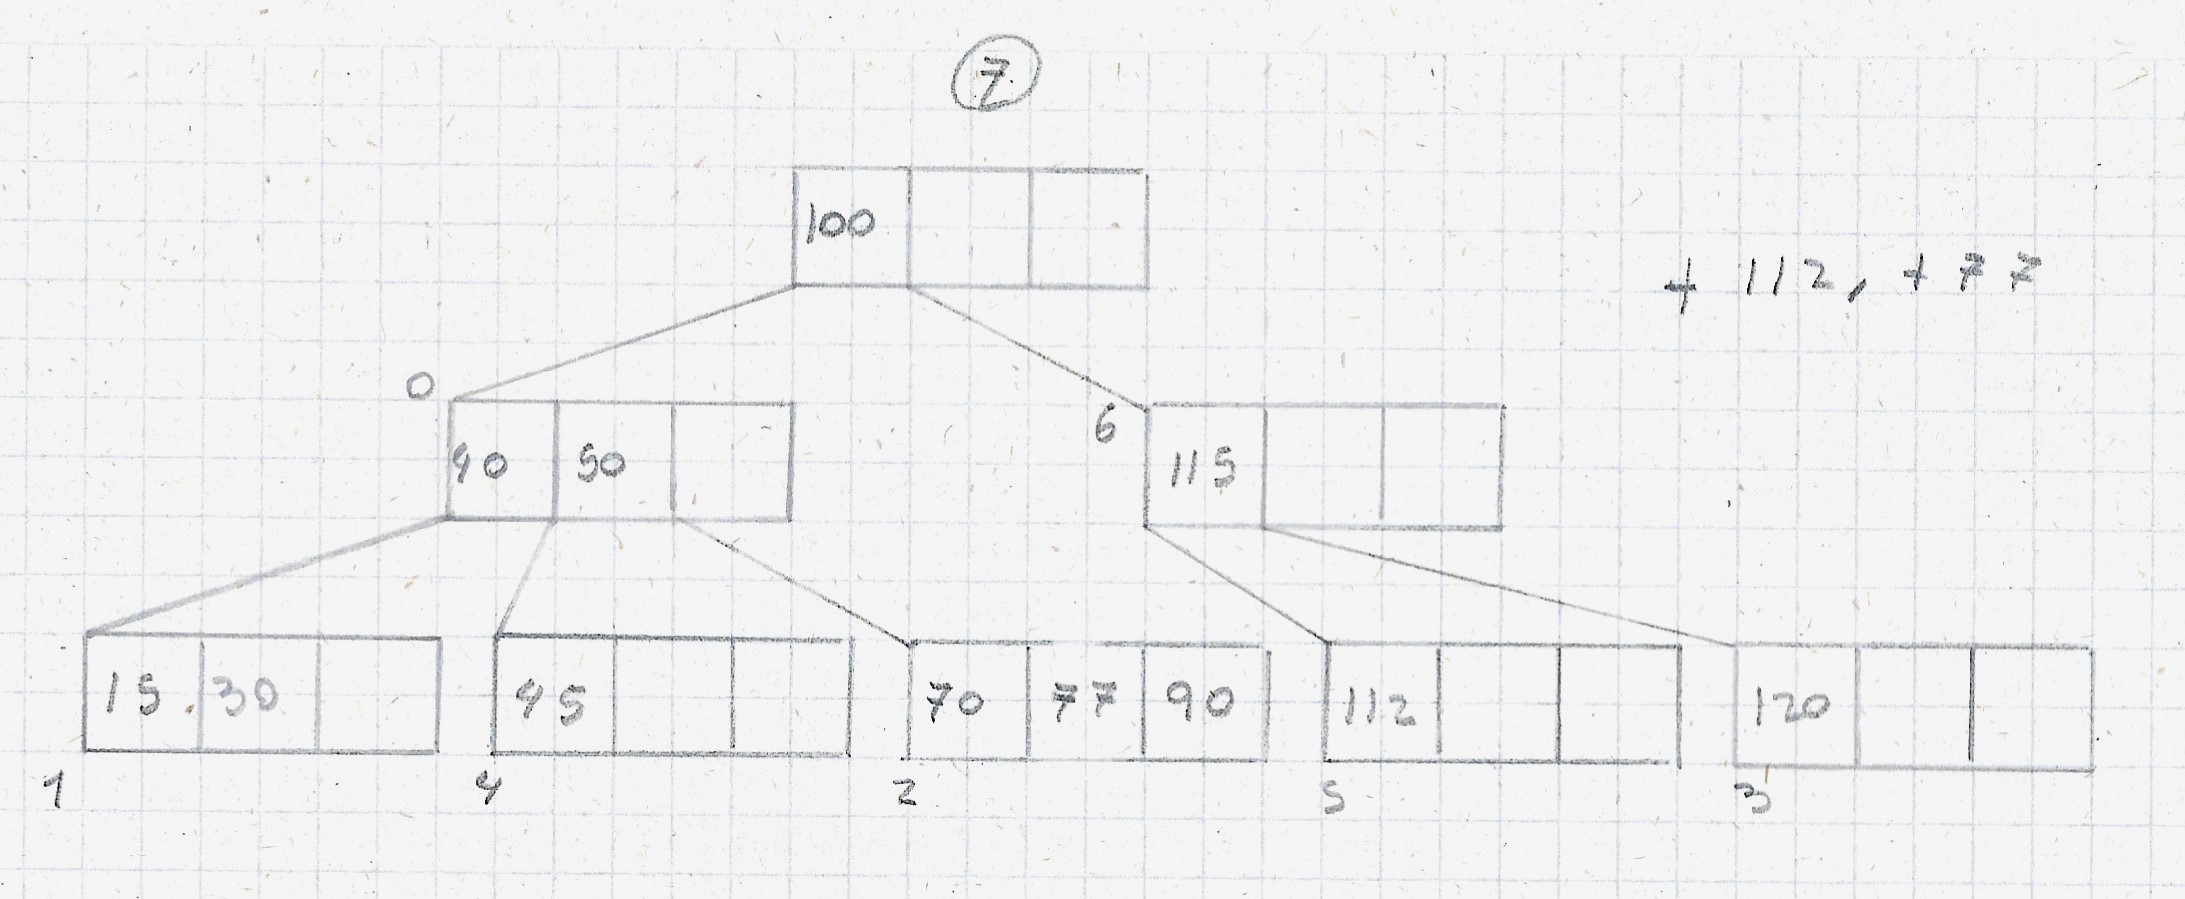 7
100
+ 112, + 77
0
40 50
6
115
15 30
45
70 77 90
112
120
1 4 2 5 3